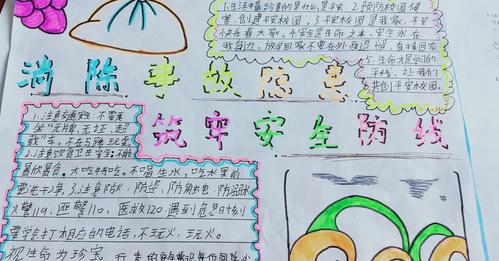 1.生活中最珍贵的是什么,是平安 2.预防校园侵
害,创建平安校园,3.平安校园是我家,平安
快乐看大家,4.安全是生命之本,安全永在
我身边,放学回家不要在外面逗留,直接回家
5.生命才是学习的
平线,让我们
共创平安校园。
消除事故隐患
筑牢安全防线
1.注意交通安全:不要乘
坐"无牌、无证、超
载"车,不在马路玩耍
2.注意饮食卫生安全不能
暴饮暴食,大吃特吃,不喝生水,吃水果前
要洗干净3.注意防火,防盗,防触电,防溺水
火警119,匪警110,医救120:遇到危急时刻
要学打相应的电话,不玩火,玩火。
视生命为珍宝